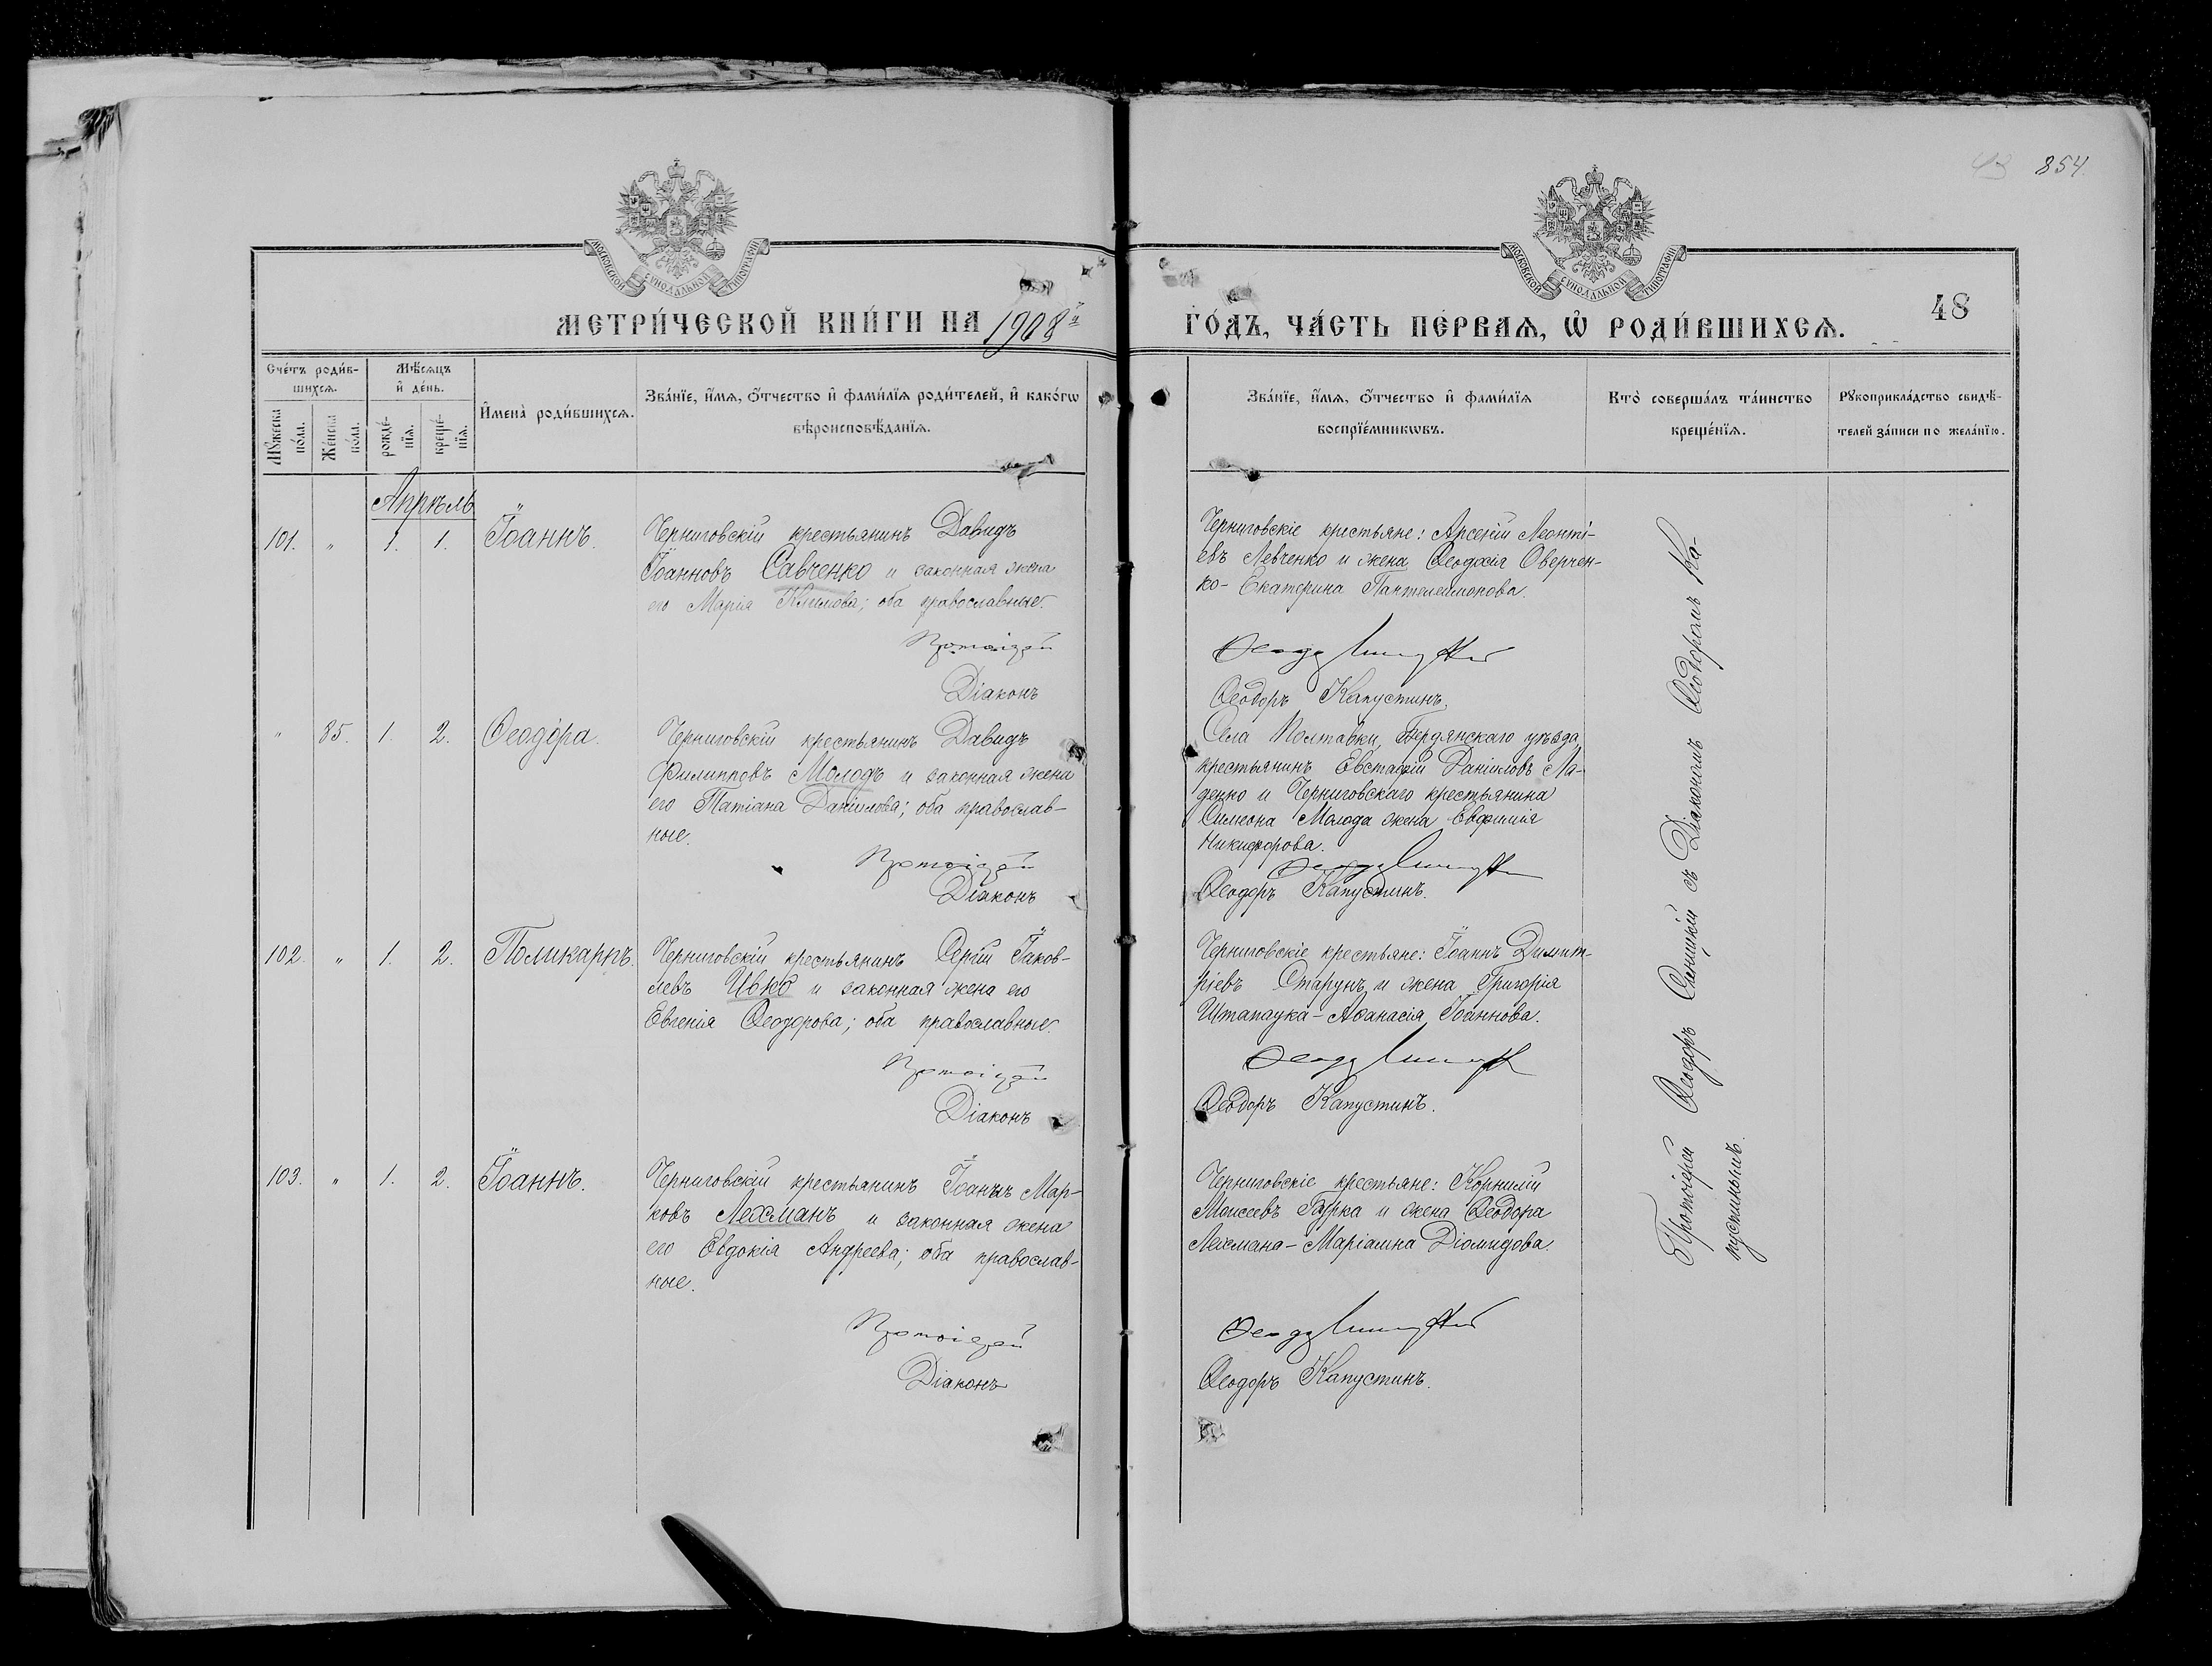 43 854
МОСКОВСКОЙ СѴНОДАЛЬНОЙ ТИПОГРАФІИ
МОСКОВСКОЙ СѴНОДАЛЬНОЙ ТИПОГРАФІИ
МЕТРИ́ЧЕСКОЙ КНИ́ГИ НА 1908й
ГО́ДЪ, ЧА́СТЬ ПЕ́РВАѦ, Ѡ РОДИ́ВШИХСѦ.
48
Сче́тъ роди́в-
шихсѧ.
Мѣ́сѧцъ
и҆ де́нь.
Мꙋ́жеска
по́ла.
Же́нска
по́ла.
рожде́-
нїѧ.
креще́-
нїѧ.
И҆мена̀ роди́вшихсѧ.
Зва́нїе, и҆́мѧ, ѻ҆́тчество и҆ фами́лїѧ роди́телей, и҆ како́гѡ
вѣроисповѣ́данїѧ.
Зва́нїе, и҆́мѧ, ѻ҆́тчество и҆ фами́лїѧ
воспрїе́мникѡвъ.
Кто̀ соверша́лъ та́инство
креще́нїѧ.
Рꙋкоприкла́дство свидѣ́-
телей за́писи по жела́нїю.
Апрѣль
101. „ 1. 1. Іоаннъ.
Черниговскій крестьянинъ Давидъ
Іоанновъ Савченко и законная жена
его Марія Климова; оба православные.
Протоіерей
Діаконъ
Черниговскіе крестьяне: Арсеній Леонті-
евъ Левченко и жена Ѳеодосія Оверчен-
ко - Екатерина Пантелеимонова.
Ѳеодоръ Капустинъ.
„ 85. 1. 2. Ѳеодора.
Черниговскій крестьянинъ Давидъ
Филипповъ Молодъ и законная жена
его Татіана Даніилова; оба православ-
ные.
Протоіерей
Діаконъ
Села Полтавки, Бердянскаго уѣзда,
крестьянинъ Евстафій Даніиловъ Ла-
денко и Черниговскаго крестьянина
Симеона Молода жена Евфимія
Никифорова.
Ѳеодоръ Капустинъ.
102. „ 1. 2. Поликарпъ.
Черниговскій крестьянинъ Сергій Іаков-
левъ Ивко и законная жена его
Евгенія Ѳеодорова; оба православные.
Протоіерей
Діаконъ
Черниговскіе крестьяне: Іоаннъ Димит-
ріевъ Старунъ и жена Григорія
Штапаука - Аѳанасія Іоаннова.
Ѳеодоръ Капустинъ.
103. „ 1. 2. Іоаннъ.
Черниговскій крестьянинъ Іоаннъ Мар-
ковъ Лехманъ и законная жена
его Евдокія Андреева; оба православ-
ные.
Протоіерей
Діаконъ
Черниговскіе крестьяне: Корнилій
Моисеевъ Гурка и жена Ѳеодора
Лехмана - Маріамна Діомидова.
Ѳеодоръ Капустинъ.
Протоіерей Ѳеодоръ Синицкій съ Діакономъ Ѳеодоромъ Ка-
пустинымъ.